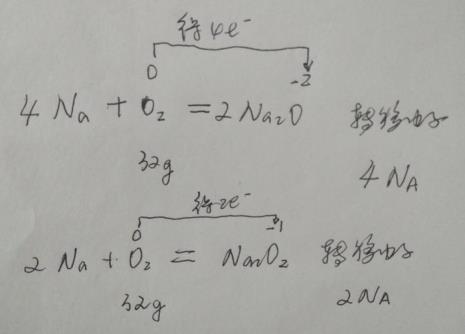 得4e⁻
0 -2
4 Na + O₂ = 2 Na₂O 转移电子
32g 4 NA
得2e⁻
0 -1
2 Na + O₂ = Na₂O₂ 转移电子
32g 2NA